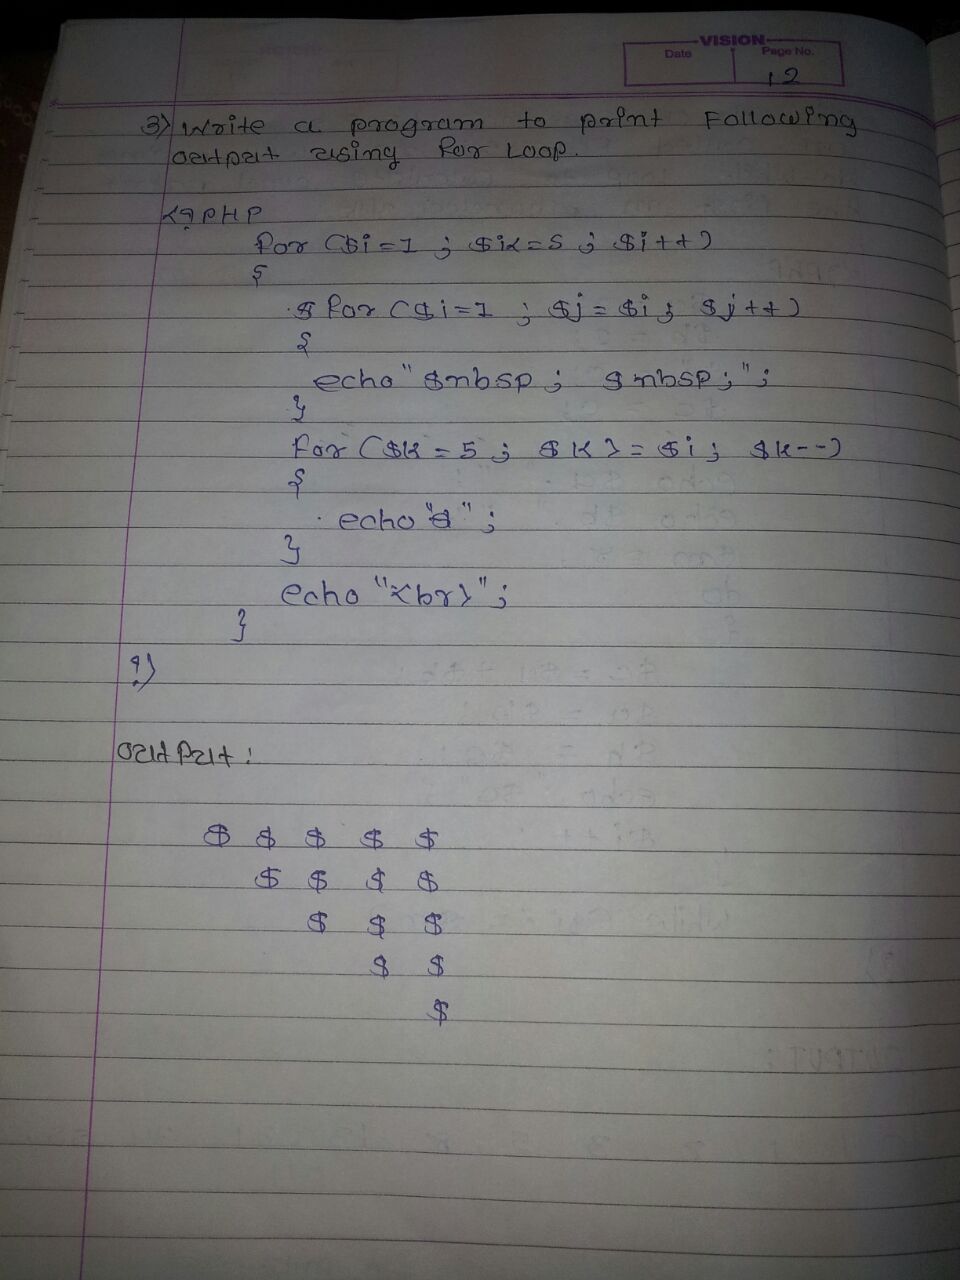 VISION
Date Page No.
12
3) Write a program to print Following
output using for Loop.
<?PHP
for ($i=1 ; $i<=5 ; $i++)
{
for ($i=1 ; $j = $i ; $j++)
{
echo" $nbsp ; $nbsp ; " ;
}
for ($k = 5 ; $k >= $i ; $k--)
{
echo "$" ;
}
echo "<br>" ;
}
?>
output :
$ $ $ $ $
$ $ $ $
$ $ $
$ $
$